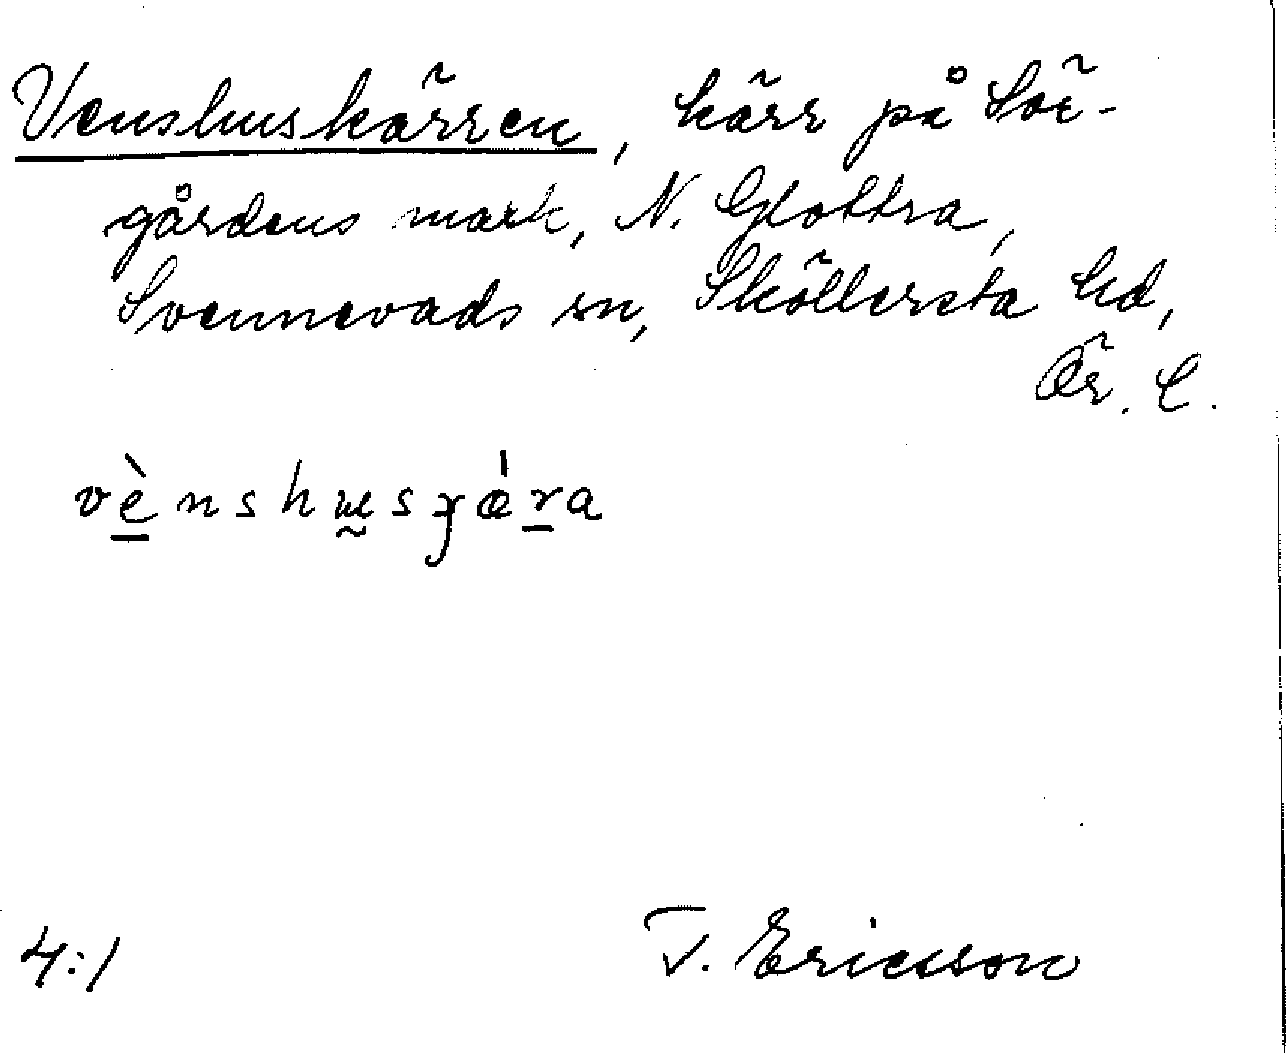 Venshuskärren, kärr på Sör-
gårdens mark, N. Glottra,
Svennevads sn, Sköllersta hd,
Ör. l.
vènshusɟæ̀ra
4:1
T. Ericsson